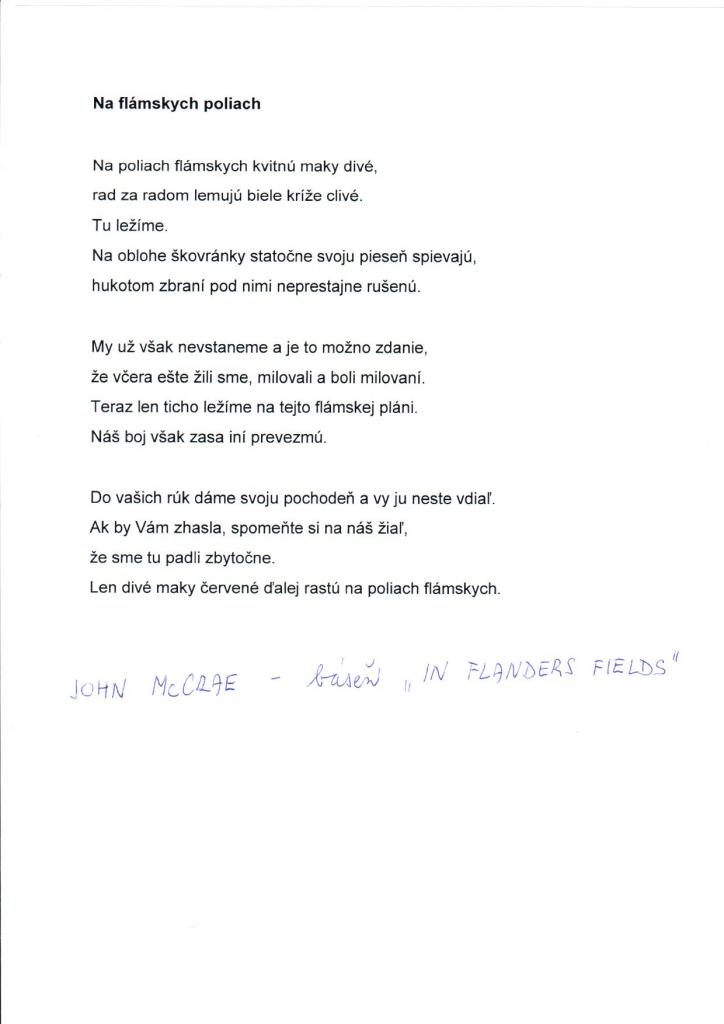 Na flámskych poliach
Na poliach flámskych kvitnú maky divé,
rad za radom lemujú biele kríže clivé.
Tu ležíme.
Na oblohe škovránky statočne svoju pieseň spievajú,
hukotom zbraní pod nimi neprestajne rušenú.
My už však nevstaneme a je to možno zdanie,
že včera ešte žili sme, milovali a boli milovaní.
Teraz len ticho ležíme na tejto flámskej pláni.
Náš boj však zasa iní prevezmú.
Do vašich rúk dáme svoju pochodeň a vy ju neste vdiaľ.
Ak by Vám zhasla, spomeňte si na náš žiaľ,
že sme tu padli zbytočne.
Len divé maky červené ďalej rastú na poliach flámskych.
JOHN McCRAE - báseň „IN FLANDERS FIELDS"